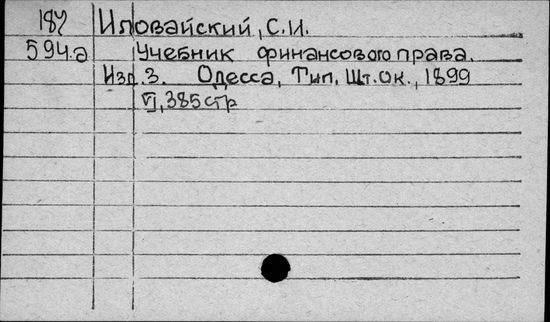 187 Иловайский, С.И.
594.а Учебник финансового права.
Изд. 3. Одесса, Тип. Шт. ок., 1899
VI, 385 стр